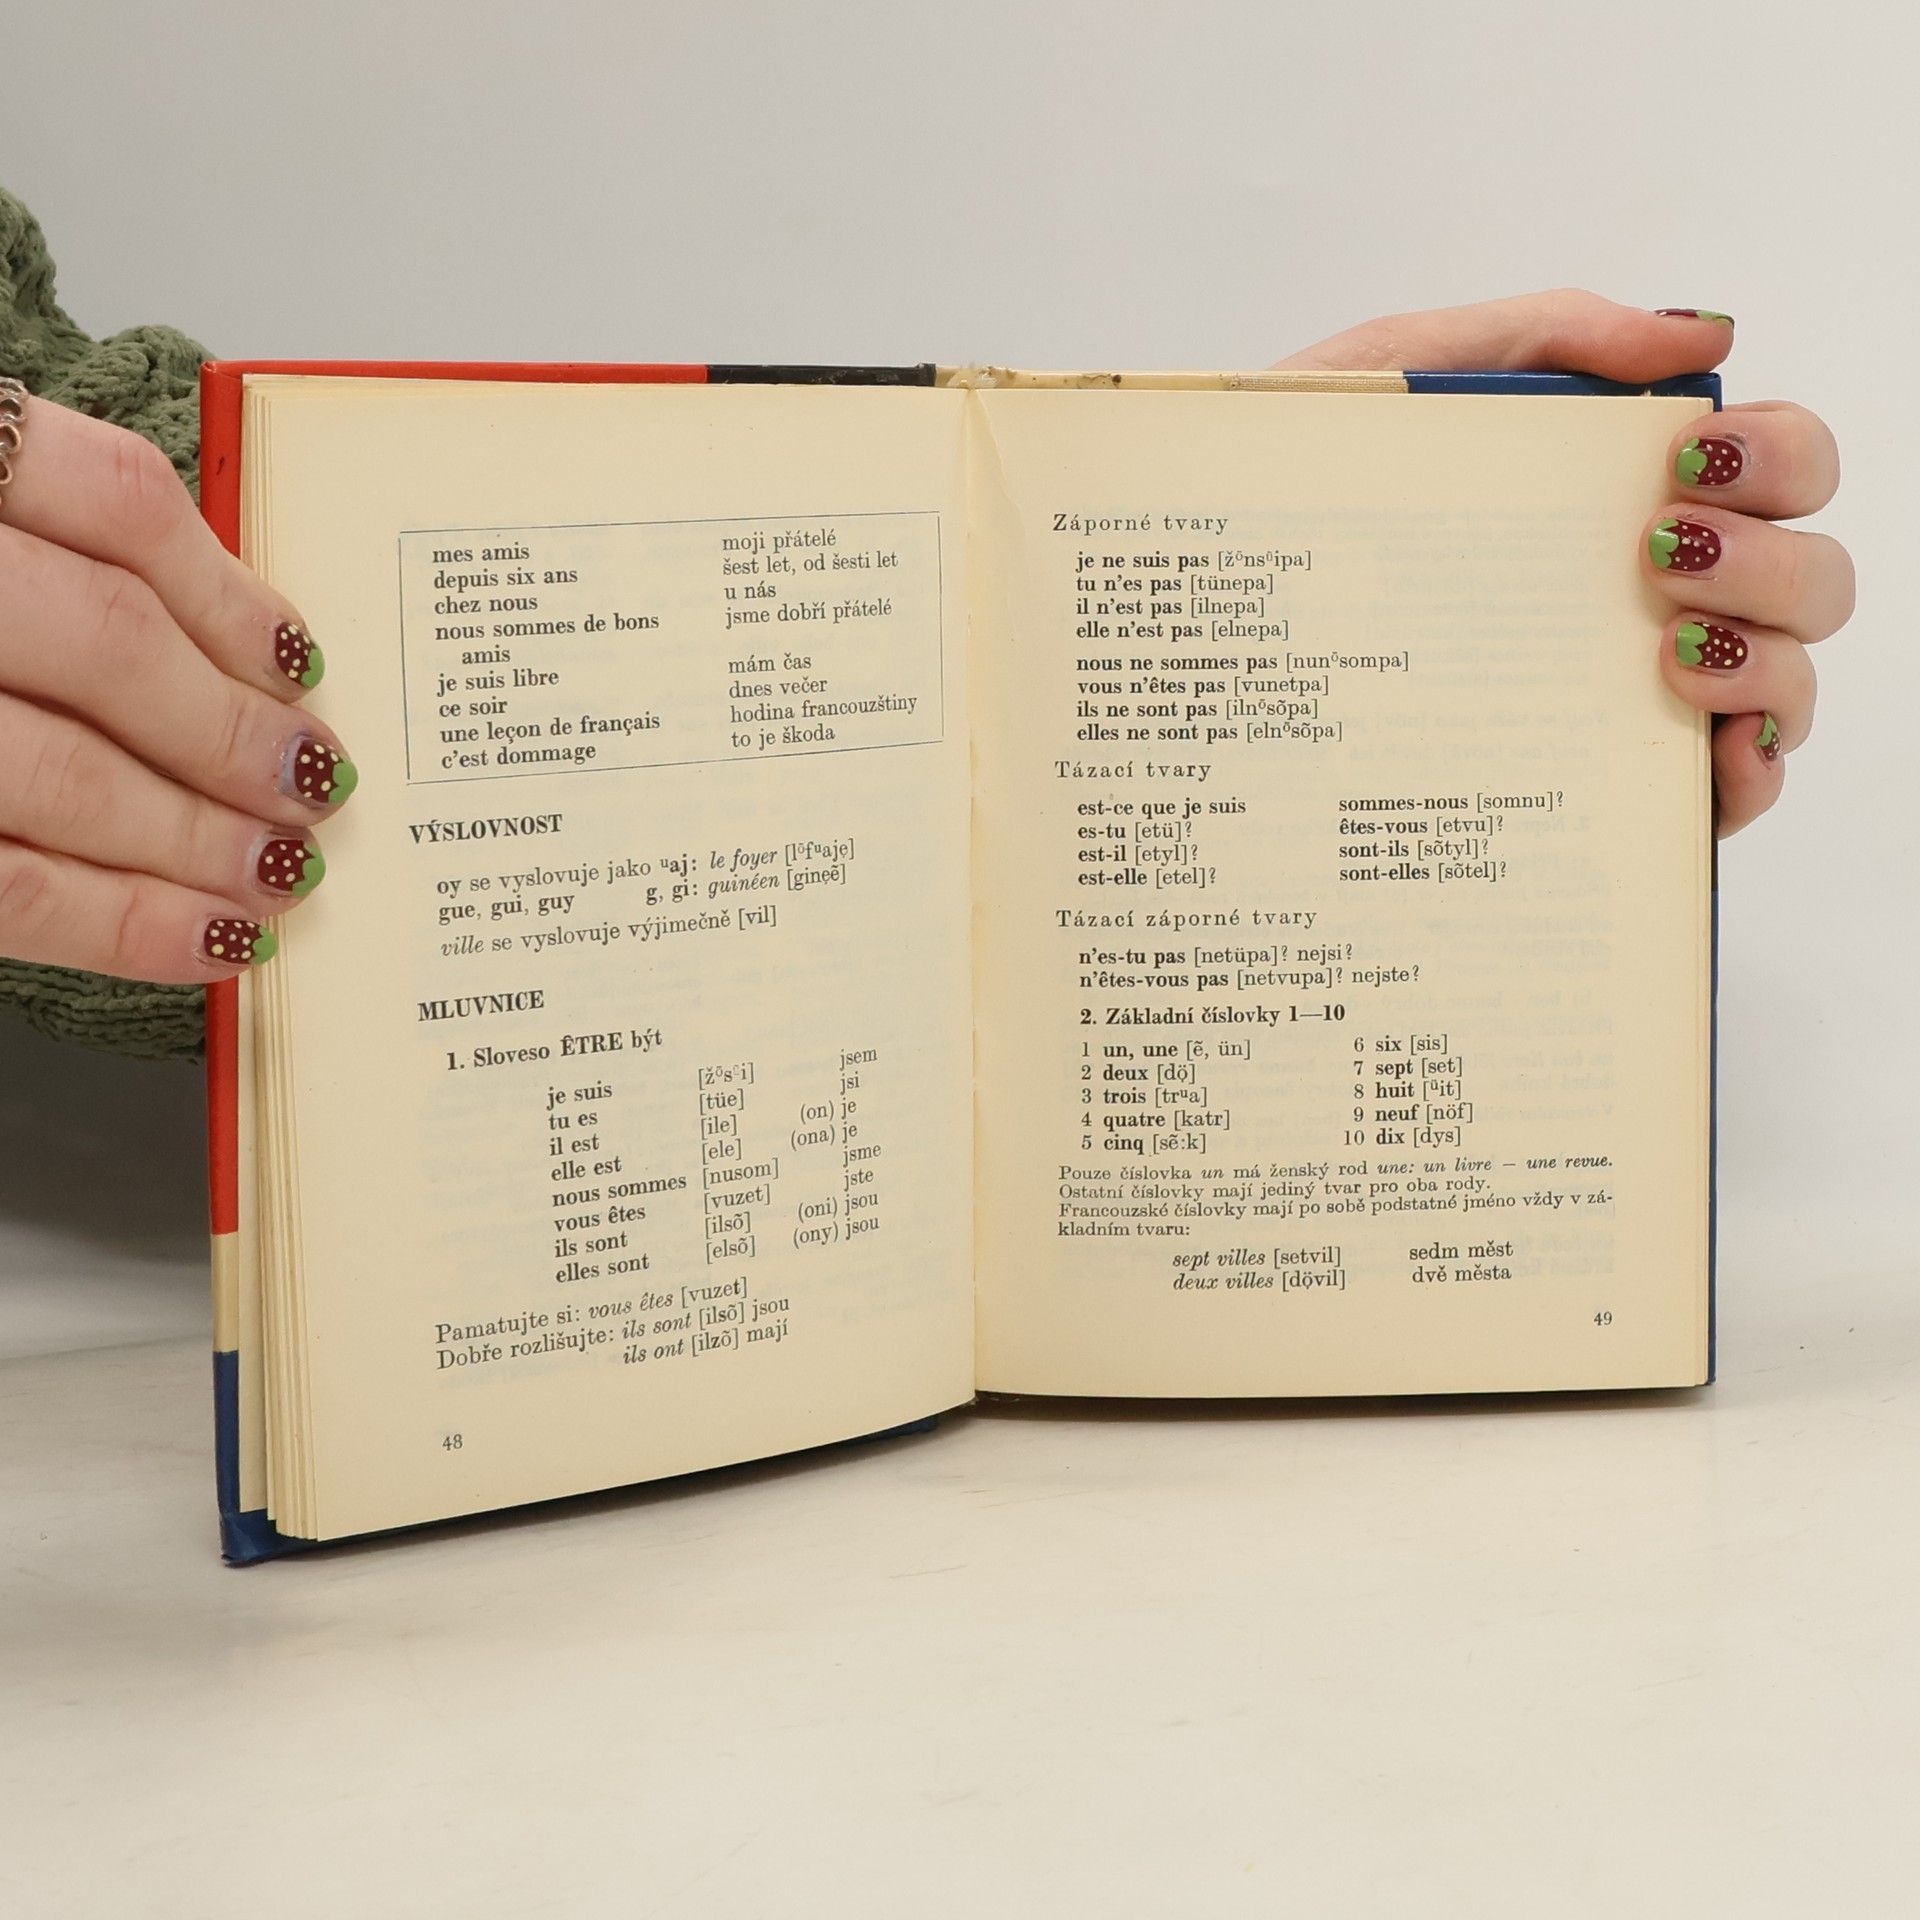 mes amis moji přátelé
depuis six ans šest let, od šesti let
chez nous u nás
nous sommes de bons jsme dobří přátelé
amis
je suis libre mám čas
ce soir dnes večer
une leçon de français hodina francouzštiny
c'est dommage to je škoda
VÝSLOVNOST
oy se vyslovuje jako ᵘaj: le foyer [lᵒ̈fᵘaję]
gue, gui, guy g, gi: guinéen [ginęẽ]
ville se vyslovuje výjimečně [vil]
MLUVNICE
1. Sloveso ÊTRE být
je suis [žᵒ̈sᵘ̈i] jsem
tu es [tüe] jsi
il est [ile] (on) je
elle est [ele] (ona) je
nous sommes [nusom] jsme
vous êtes [vuzet] jste
ils sont [ilsõ] (oni) jsou
elles sont [elsõ] (ony) jsou
Pamatujte si: vous êtes [vuzet]
Dobře rozlišujte: ils sont [ilsõ] jsou
ils ont [ilzõ] mají
48
Záporné tvary
je ne suis pas [žᵒ̈nsᵘ̈ipa]
tu n'es pas [tünepa]
il n'est pas [ilnepa]
elle n'est pas [elnepa]
nous ne sommes pas [nunᵒ̈sompa]
vous n'êtes pas [vunetpa]
ils ne sont pas [ilnᵒ̈sõpa]
elles ne sont pas [elnᵒ̈sõpa]
Tázací tvary
est-ce que je suis sommes-nous [somnu]?
es-tu [etü]? êtes-vous [etvu]?
est-il [etyl]? sont-ils [sõtyl]?
est-elle [etel]? sont-elles [sõtel]?
Tázací záporné tvary
n'es-tu pas [netüpa]? nejsi?
n'êtes-vous pas [netvupa]? nejste?
2. Základní číslovky 1—10
1 un, une [ẽ, ün] 6 six [sis]
2 deux [dö̦] 7 sept [set]
3 trois [trᵘa] 8 huit [ᵘ̈it]
4 quatre [katr] 9 neuf [nöf]
5 cinq [sẽ:k] 10 dix [dys]
Pouze číslovka un má ženský rod une: un livre – une revue.
Ostatní číslovky mají jediný tvar pro oba rody.
Francouzské číslovky mají po sobě podstatné jméno vždy v zá-
kladním tvaru:
sept villes [setvil] sedm měst
deux villes [dö̦vil] dvě města
49